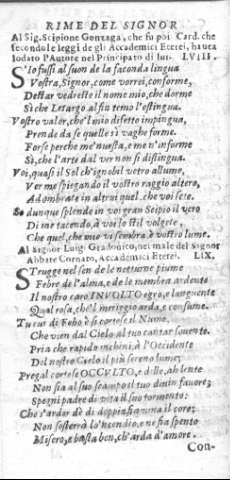 RIME DEL SIGNOR
Al Sig. Scipione Gonzaga, che fu poi Card. che
secondo le leggi de gli Accademici Eterei, hauea
lodato l'Autore nel Principato di lui. LVIII.
S'Io fussi al suon de la faconda lingua
Vostra, Signor, come vorrei, conforme,
Destar vedreste il nome mio, che dorme
Sì che Letargo al fin temo l'estingua.
Vostro valor, che'l mio difetto impingua,
Prende da se quelle sì vaghe forme.
Forse perche me'n vesta, e me'n informe
Sì, che l'arte dal ver non si distingua.
Voi, quasi il Sol ch'ignobil vetro allume,
Ver me spiegando il vostro raggio altero,
Adombrate in altrui quel, che voi sete.
Se dunque splende in voi gran Scipio il vero
Di me tacendo, à voi lo stil volgete,
Che quel, che mio vi sembra è vostro lume.
Al Signor Luigi Gradenico, nel male del Signor
Abbate Cornaro, Accademici Eterei. LIX.
STrugge nel sen de le notturne piume
Febre de l'alma, e de le membra ardente
Il nostro caro INVOLTO egro, e languente
Qual rosa, che'l meriggio arda, e consume.
Tu cui di Febo è sì cortese il Nume,
Che vien dal Cielo al tuo cantar souente.
Pria che rapido inchini, à l'Occidente
Dil nostro Cielo il più sereno lume;
Pregal cortese OCCVLTO, e dille, ah lente
Non sia al suo scampo il tuo diuin fauore;
Spegni padre di vita il suo tormento:
Che s'ardar dè di doppia fiamma il core;
Non sosterrà l'incendio, e ne fia spento
Misero, e basta ben, ch'arda d'amore.
Con-